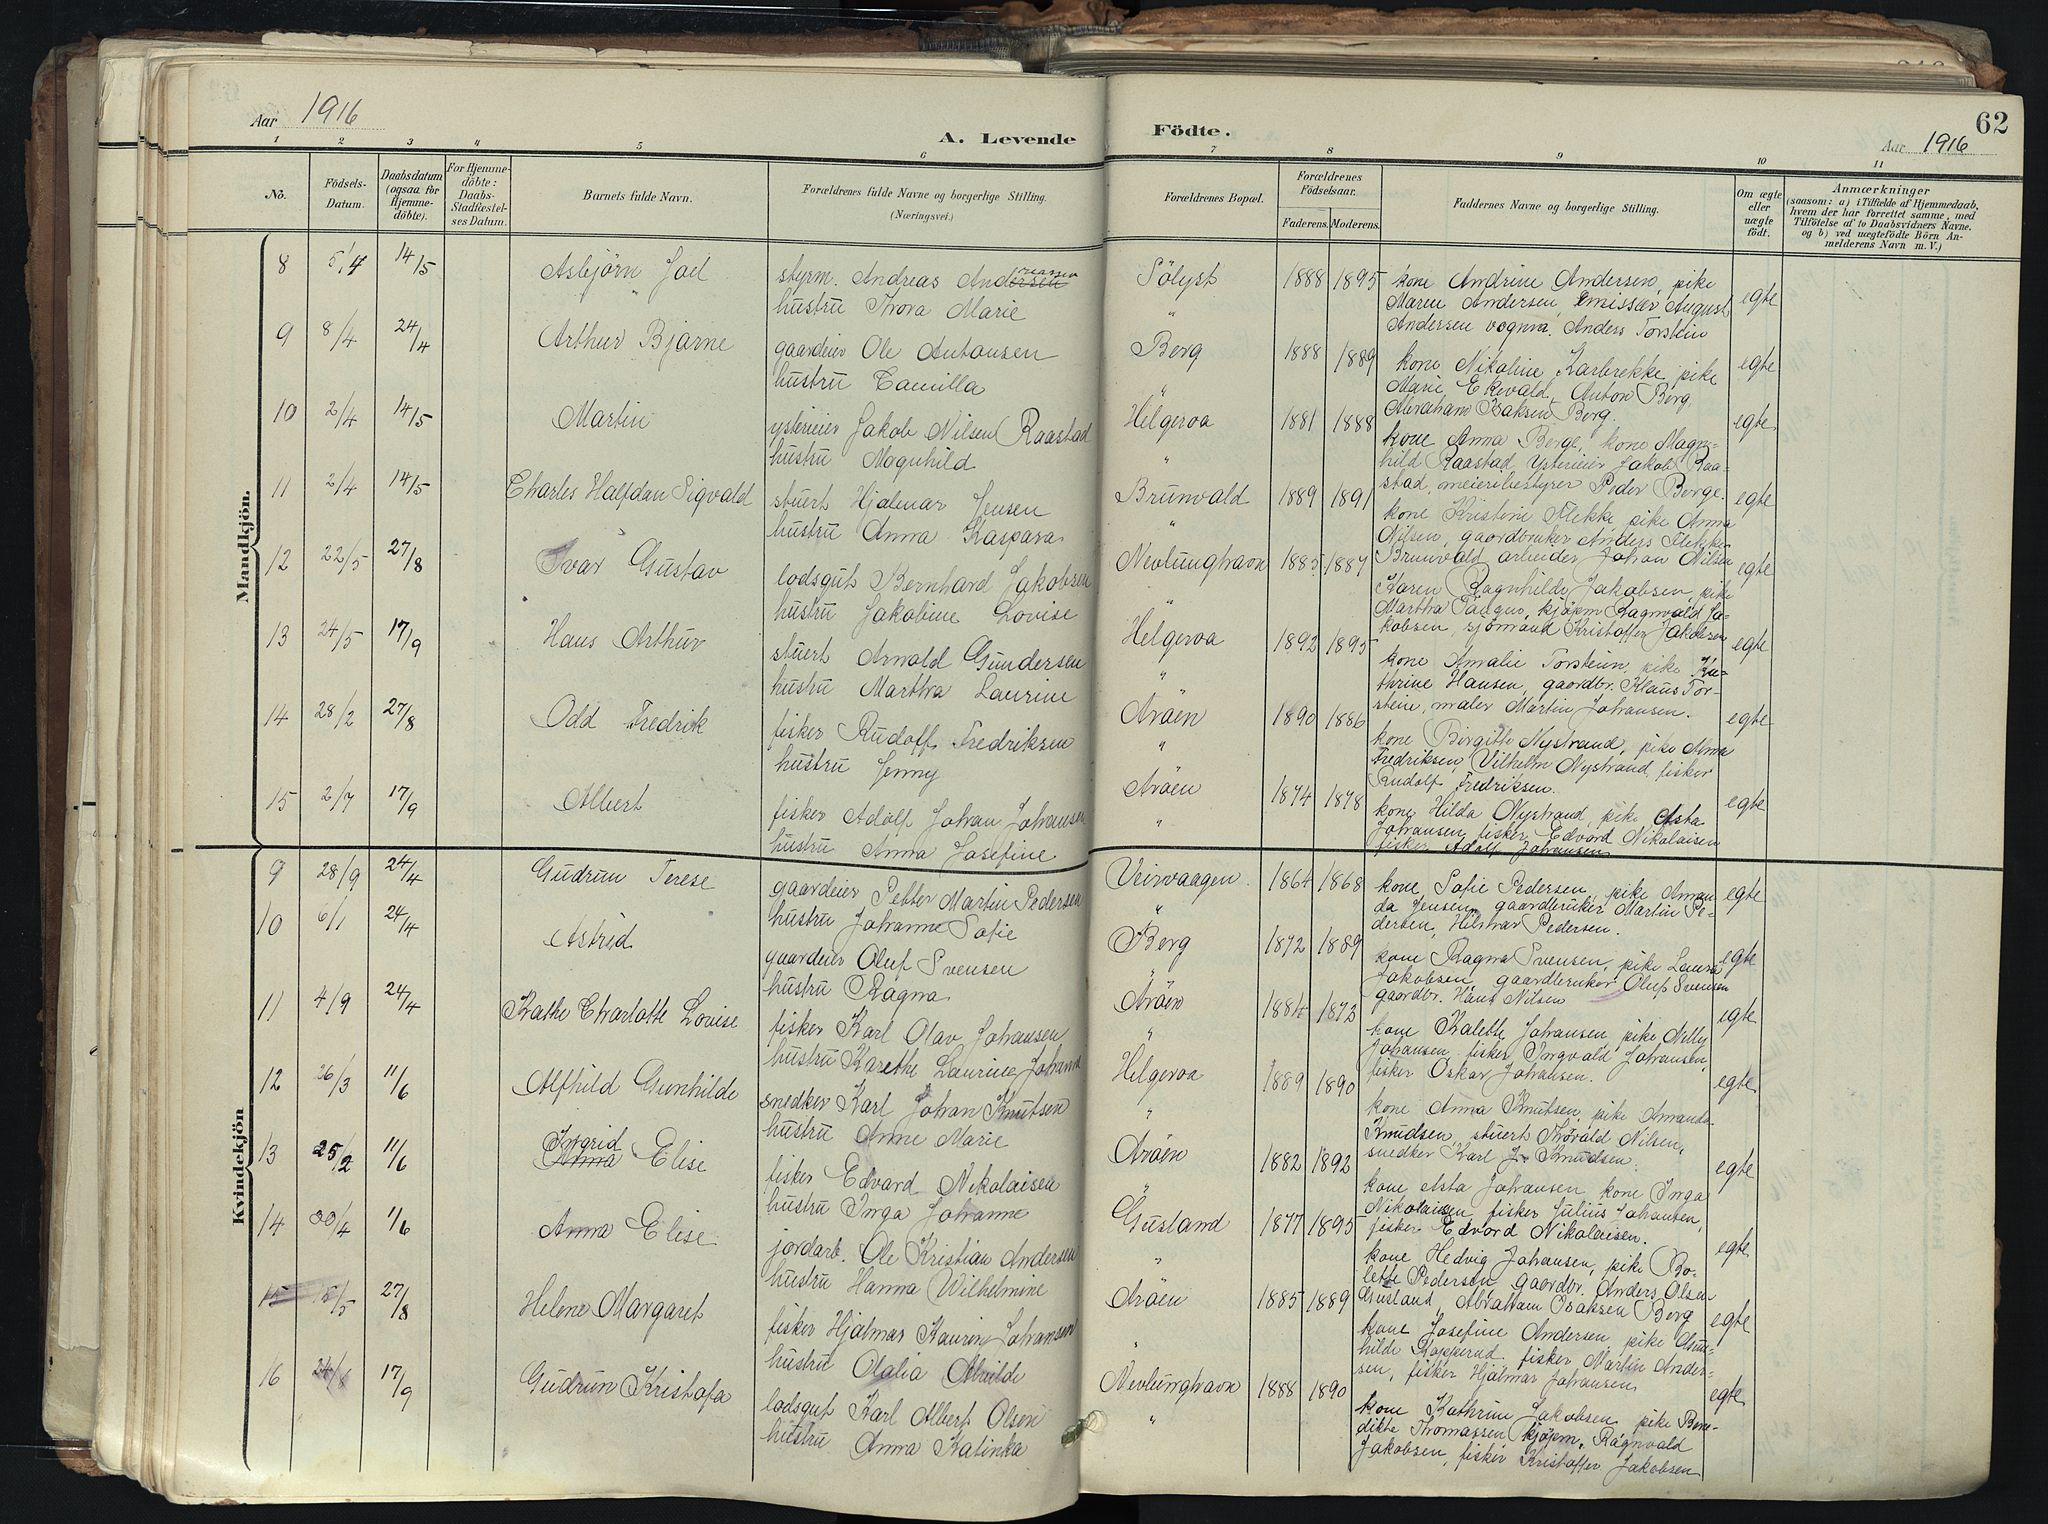 Aar 1916
A. Levende
Födte.
62
Aar 1916
1 2 3 4 5 6 7 8 9 10 11
No.
Födsels-Datum.
Daabsdatum (ogsaa for Hjemmedöbte).
For Hjemmedöbte: Daabs-Stadfæstelses Datum.
Barnets fulde Navn.
Forældrenes fulde Navne og borgerlige Stilling. (Næringsvei.)
Forældrenes Bopæl.
Forældrenes Födselsaar.
Faderens. Moderens.
Faddernes Navne og borgerlige Stilling.
Om ægte eller uægte födt.
Anmærkninger
(saasom: a) i Tilfælde af Hjemmedaab,
hvem der har forrettet samme, med
Tilföielse af to Daabsvidners Navne.
og b) ved uægtefödte Börn Anmelderens Navn m. V.)
Mandkjön.
8 5/4 14/5 Asbjörn Joel styrm. Andreas Andreassen Sölyst 1888 1895 kone Andrine Andersen, pike egte
hustru Thora Marie " Maren Andersen, Emissær August
Andersen vognm. Anders Torstein
9 8/4 24/4 Arthur Bjarne gaardeier Ole Antonsen Berg 1888 1889 kone Nikoline Karbrekke pike egte
hustru Camilla " Marie Ekevald, Anton Berg
Abraham Isaksen Berg.
10 2/4 14/5 Martin ysterieier Jakob Nilsen Raastad Helgeroa 1881 1888 kone Anna Berge, kone Magn- egte
hustru Magnhild " hild Raastad Ysterieier Jakob Raa-
stad, meieribestyrer Peder Berge.
11 2/4 14/5 Charles Halfdan Sigvald stuert Hjalmar Jensen Brunvald 1889 1891 kone Kristine Flekke, pike Anna egte
hustru Anna Kaspara " Nilsen, gaardbruker Anders Flekke
Brunvald arbeider Johan Nilsen
12 22/5 27/8 Ivar Gustav lodsgut Bernhard Jakobsen Nevlunghavn 1885 1887 Karen Ragnhilde Jakobsen, pike egte
hustru Jakobine Lovise " Martha Tangen, kjöpm Ragnvald Ja-
kobsen, sjömand Kristoffer Jakobsen
13 24/5 17/9 Hans Arthur stuert Arnold Gundersen Helgeroa 1892 1895 kone Amalie Torstein, pike Ka- egte
hustru Martha Laurine " thrine Hansen, gaardbr. Klaus Tor-
stein, maler Martin Johansen.
14 28/2 27/8 Odd Fredrik fisker Rudolf Fredriksen Aröen 1890 1886 kone Birgitte Nystrand, pike Anna egte
hustru Jenny " Fredriksen, Vilhelm Nystrand, fisker
Rudolf Fredriksen.
15 2/7 17/9 Albert fisker Adolf Johan Johansen Aröen 1874 1878 kone Hilda Nystrand, pike Asta egte
hustru Anna Josefine " Johansen, fisker Edvard Nikolaisen
fisker Adolf Johansen
Kvindekjön
9 28/9 24/4 Gudrun Terese gaardeier Petter Martin Pedersen Veirvaagen 1864 1868 kone Sofie Pedersen, pike Aman- egte
hustru Johanne Sofie " da Jensen, gaardbruker Martin Pe-
dersen, Hilmar Pedersen.
10 6/1 24/4 Astrid gaardeier Oluf Svensen Berg 1872 1889 kone Ragna Svensen, pike Laura egte
hustru Ragna " Jakobsen, gaardbruker Oluf Svensen
gaardbr. Hans Nilsen
11 4/9 24/4 Kathe Charlotte Lovise fisker Karl Olav Johansen Aröen 1884 1873 kone Kalette Johansen, pike Nelly egte
hustru Karethe Laurine " Johansen, fisker Ingvald Johansen,
fisker Oskar Johansen.
12 26/3 11/6 Alfhild Gunhilde snedker Karl Johan Knutsen Helgeroa 1889 1890 kone Anna Knutsen, pike Amanda egte
hustru Anne Marie " Knudsen, stuert Thorvald Nilsen,
snedker Karl J. Knudsen.
13 25/2 11/6 Ingrid Anna Elise fisker Edvard Nikolaisen Aröen 1882 1892 kone Asta Johansen, kone Inga egte
hustru Inga Johanne " Nikolaisen, fisker Julius Johansen,
fisker Edvard Nikolaisen.
14 30/4 11/6 Anna Elise jordarb. Ole Kristian Andersen Gusland 1877 1895 kone Hedvig Johansen, pike Bo- egte
hustru Hanna Wilhelmine " lette Pedersen, gaardbr. Anders Olsen
Gusland, Abraham Isaksen Berg
15 15/5 27/8 Helene Margaret fisker Hjalmar Laurin Johansen Aröen 1885 1889 kone Josefine Andersen pike Gun- egte
hustru Olalia Alvilde " hilde Kopperud, fisker Martin Ander-
sen, fisker Hjalmar Johansen
16 17/9 Gudrun Kristofa lodsgut Karl Albert Olsen Nevlunghavn 1888 1890 kone Kathrine Jakobsen, pike Ben- egte
hustru Anna Kalinka " dikte Thomassen kjöpm, Ragnvald
Jakobsen, fisker Kristoffer Jakobsen